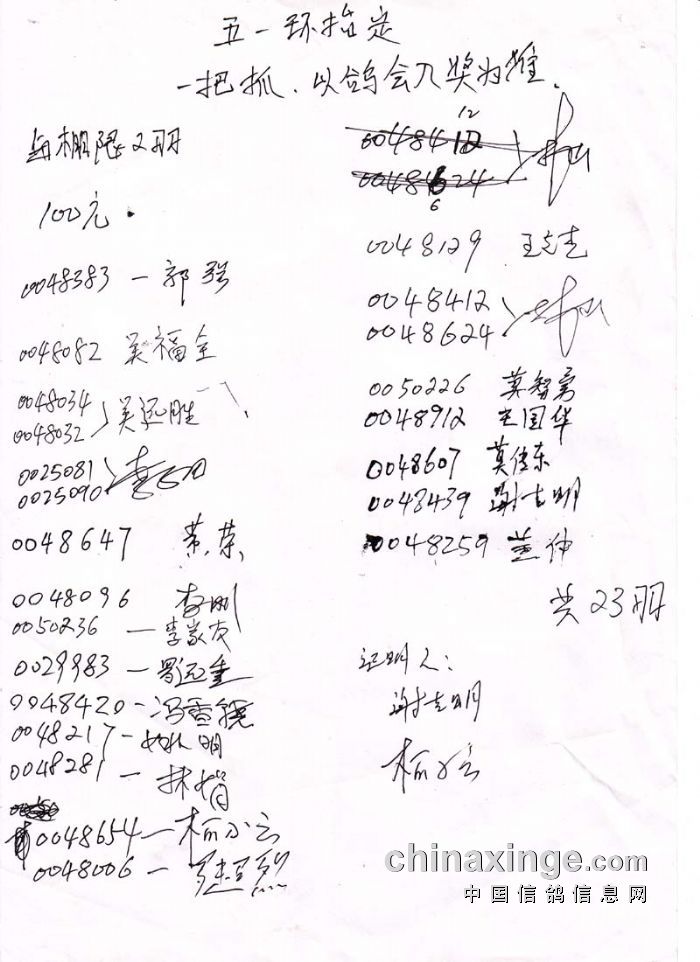 五一环指定
一把抓、以鸽会入奖为准.
每棚限2羽
100元.
0048383 — 郭强
0048082 吴福全
0048034
0048032 吴远胜
0025081
0025090
0048647
0048096 李刚
0050236 — 李家友
0029983 —
0048420 — 冯雪锐
0048217 — 姚明
0048281 —
0048654 — 杨小云
0048006 —
0048412
12
0048624
6
0048129 王志杰
0048412
0048624
0050226 莫智勇
0048912 王国华
0048607 莫伟东
0048439 谢志明
0048259 兰仲
共23羽
证明人:
谢志明
杨小云
chinaxinge.com
中国信鸽信息网